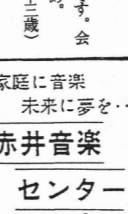 十三歳)
す。会
家庭に音楽
未来に夢を‥
赤井音楽
センター